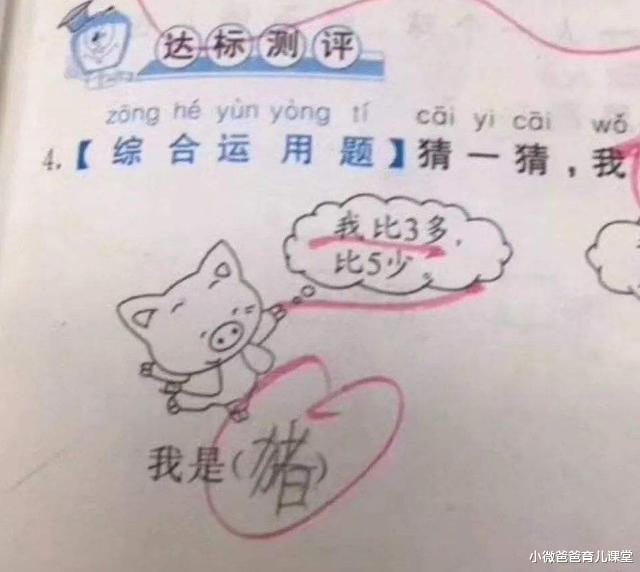 达标测评
zōng hé yùn yòng tí cāi yi cāi wǒ
4.【综合运用题】猜一猜，我
我比3多，
比5少。
我是(猪)
小微爸爸育儿课堂